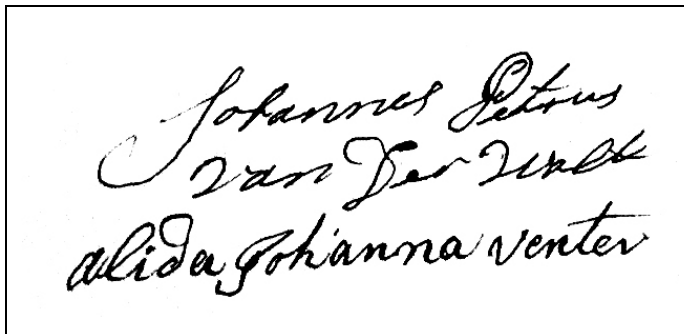 Johannes Petrus
van Der Walt
alida Johanna venter